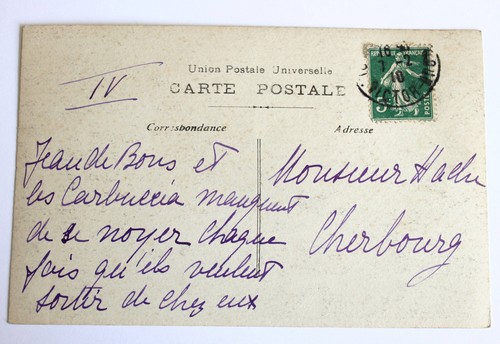 IV
Union Postale Universelle
CARTE POSTALE
Correspondance
Adresse
Jean de Bons et
les Carbuccia manquent
de se noyer chaque
fois qu'ils veulent
sortir de chez eux
Monsieur Hache
Cherbourg